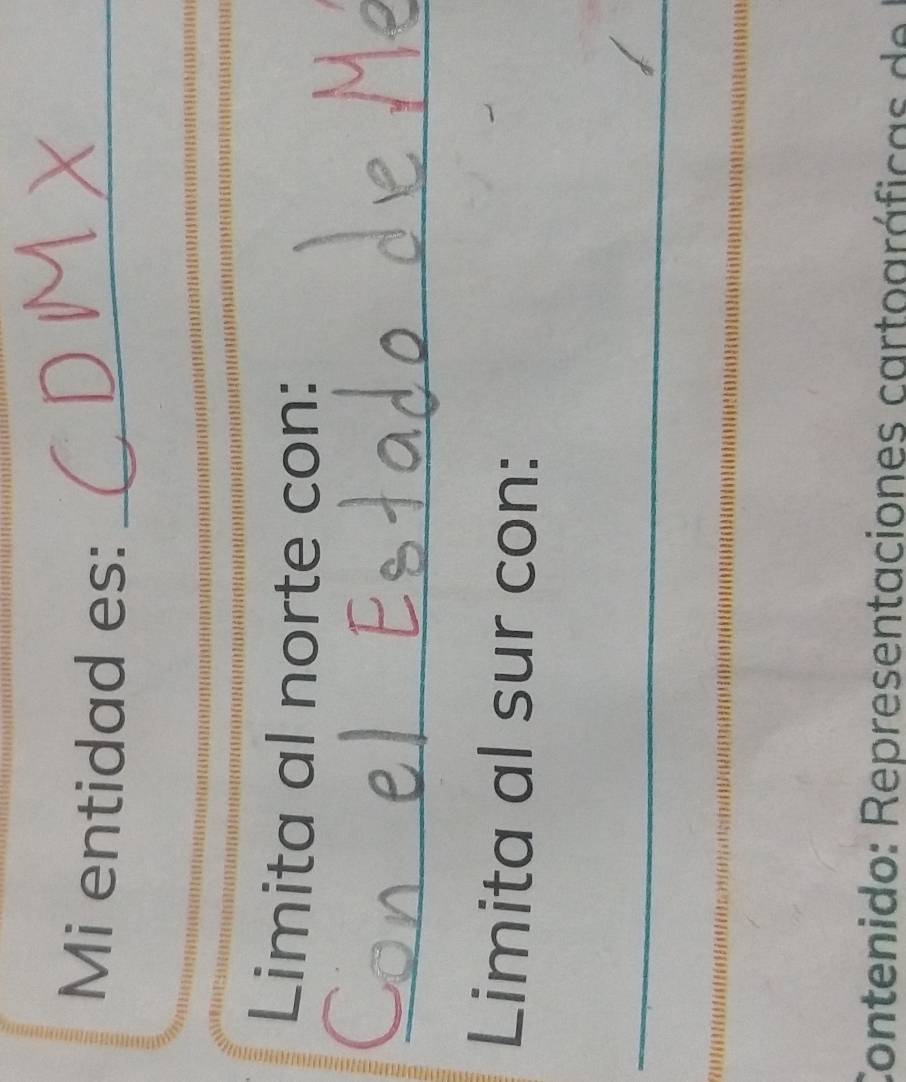 Mi entidad es: CDMX
Limita al norte con:
Con el Estado de Mé
Limita al sur con:
Contenido: Representaciones cartográficas de l